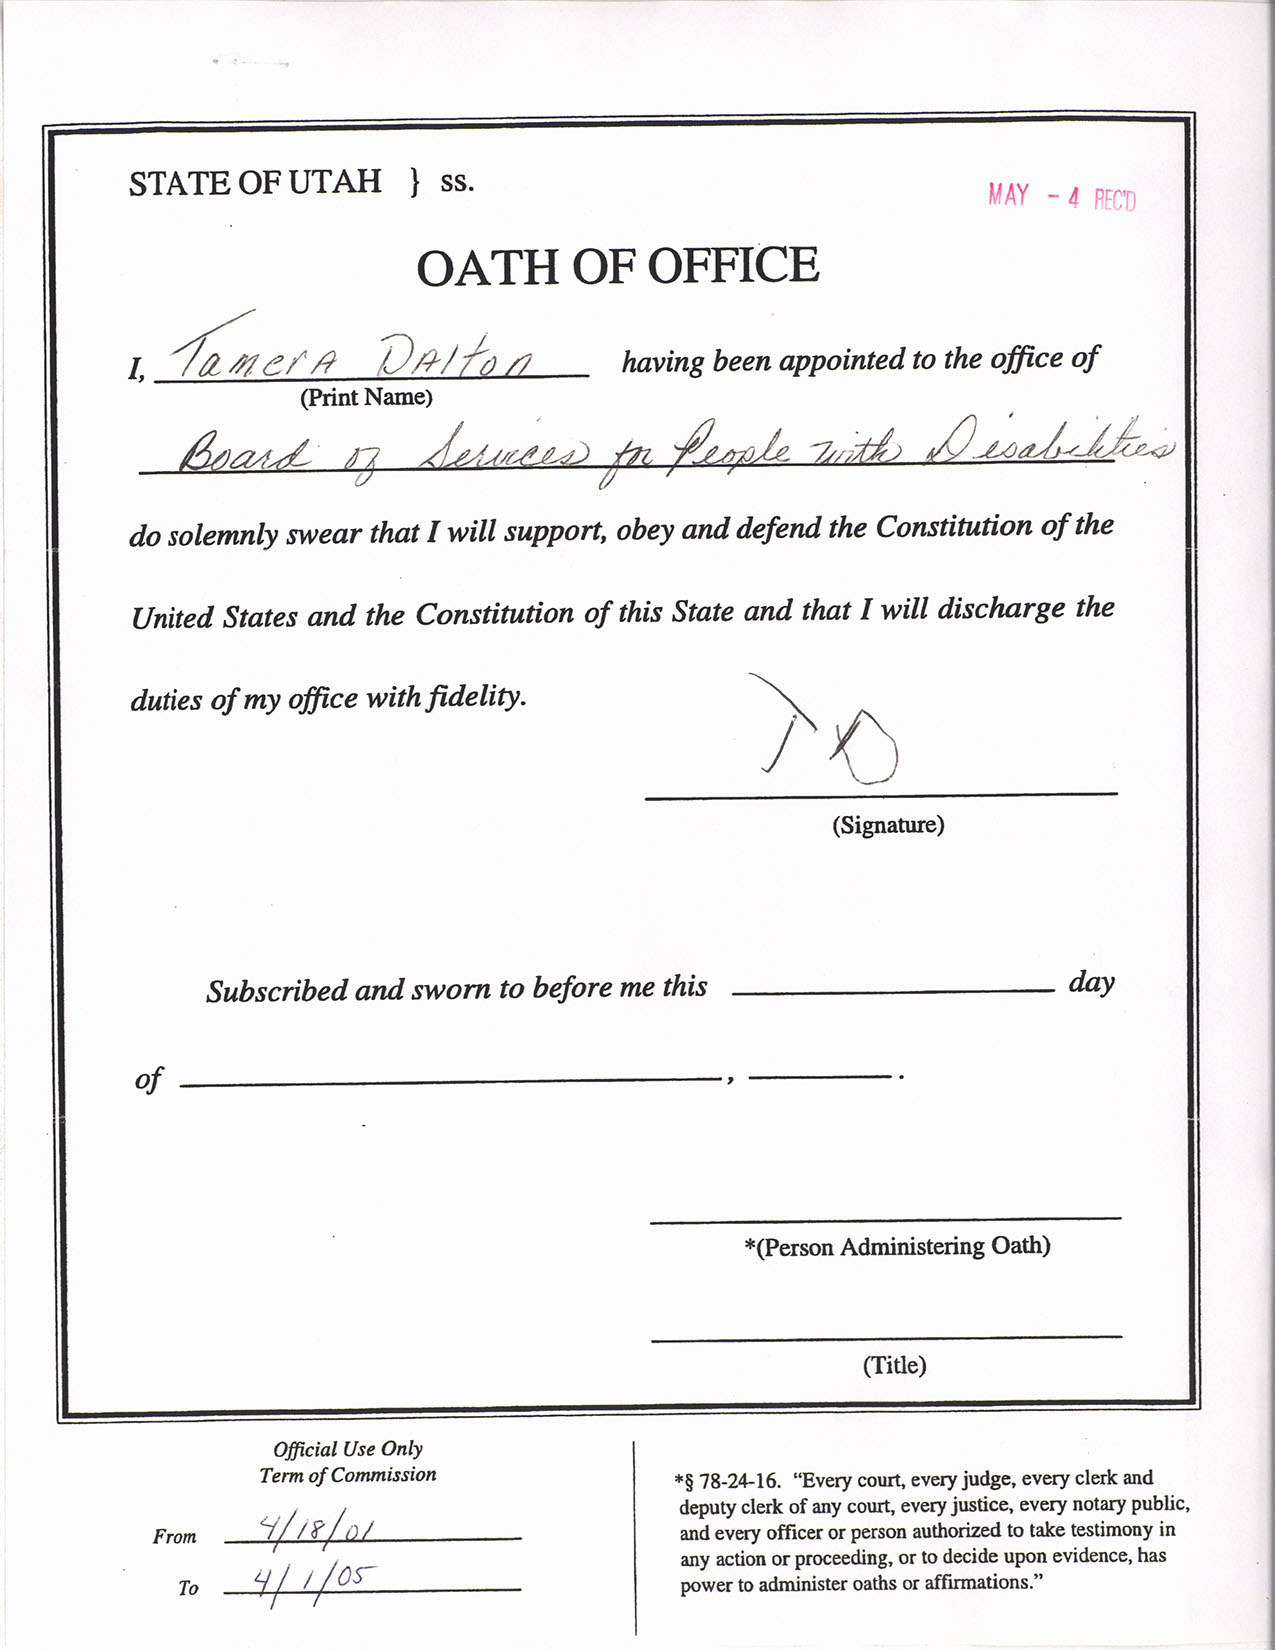 STATE OF UTAH } ss.
MAY - 4 REC'D
OATH OF OFFICE
I, Tamera Dalton having been appointed to the office of
(Print Name)
Board of Services for People with Disabilities
do solemnly swear that I will support, obey and defend the Constitution of the
United States and the Constitution of this State and that I will discharge the
duties of my office with fidelity.
T D
(Signature)
Subscribed and sworn to before me this ____ day
of ____, ____.
*(Person Administering Oath)
(Title)
Official Use Only
Term of Commission
From 4/18/01
To 4/1/05
*§ 78-24-16. “Every court, every judge, every clerk and
deputy clerk of any court, every justice, every notary public,
and every officer or person authorized to take testimony in
any action or proceeding, or to decide upon evidence, has
power to administer oaths or affirmations.”